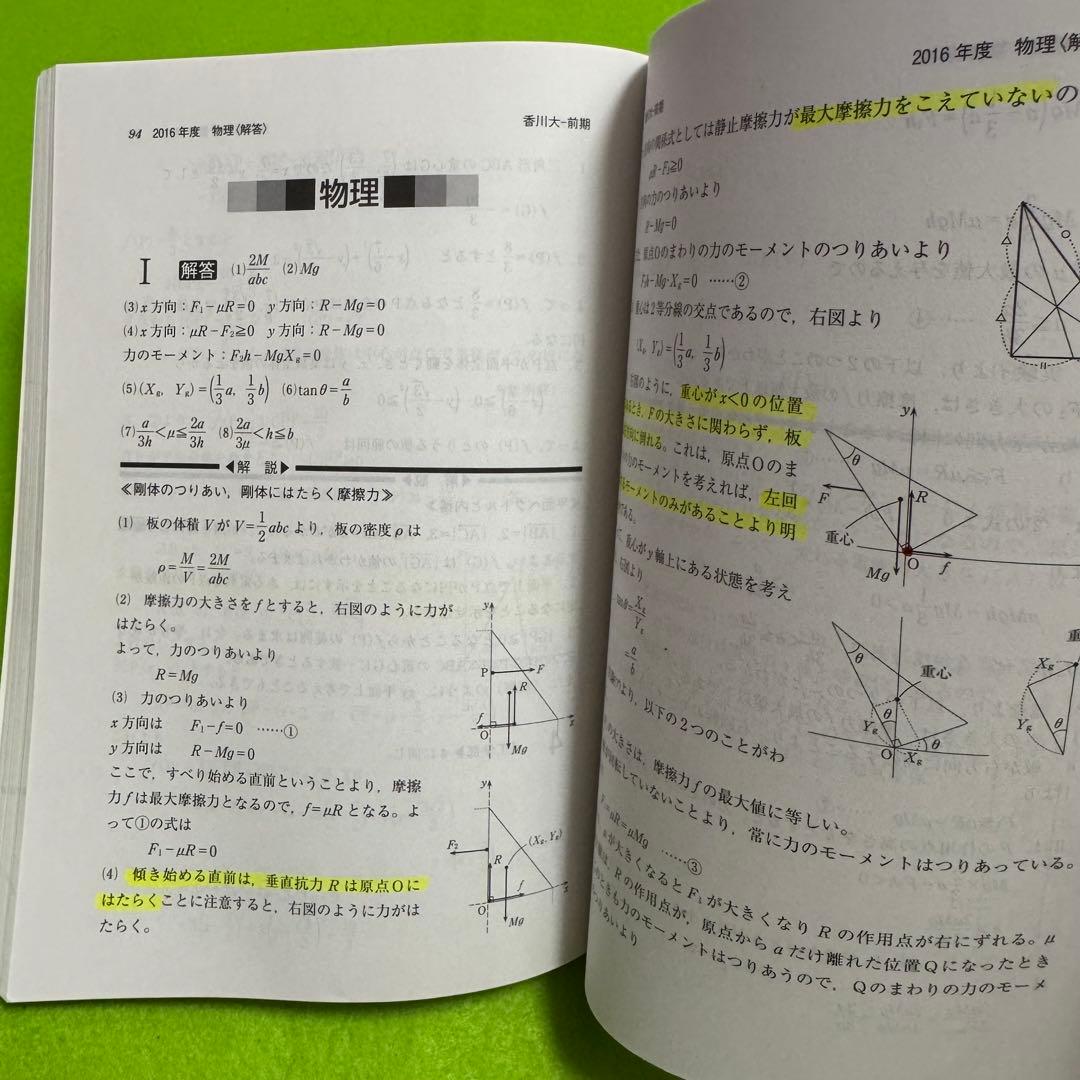 94 2016年度 物理〈解答〉
香川大-前期
物理
I 解答 (1) 2M/abc (2) Mg
(3) x方向:F₁−μR=0 y方向:R−Mg=0
(4) x方向:μR−F₂≧0 y方向:R−Mg=0
力のモーメント:F₂h−MgXg=0
(5) (Xg, Yg)=(1/3 a, 1/3 b) (6) tanθ=a/b
(7) a/3h<μ≦2a/3h (8) 2a/3μ<h≦b
◀解 説▶
≪剛体のつりあい,剛体にはたらく摩擦力≫
(1) 板の体積VがV=1/2 abcより,板の密度ρは
ρ=M/V=2M/abc
(2) 摩擦力の大きさをfとすると,右図のように力が
はたらく。
よって,力のつりあいより
R=Mg
(3) 力のつりあいより
x方向は F₁−f=0 ……①
y方向は R−Mg=0
ここで,すべり始める直前ということより,摩擦
力fは最大摩擦力となるので,f=μRとなる。よ
って①の式は
F₁−μR=0
(4) 傾き始める直前は,垂直抗力Rは原点Oに
はたらくことに注意すると,右図のように力がは
たらく。
y
P
F
R
f
O
x
Mg
y
F₂
R
(Xg, Yg)
f
O
x
Mg
2016年度 物理〈解
の関係式としては静止摩擦力が最大摩擦力をこえていないの
μR−F₂≧0
の力のつりあいより
R−Mg=0
原点Oのまわりの力のモーメントのつりあいより
F₂h−Mg·Xg=0 ……②
重心は2等分線の交点であるので,右図より
(Xg, Yg)=(1/3 a, 1/3 b)
右図のように,重心がx<0の位置
あるとき,Fの大きさに関わらず,板
方向に倒れる。これは,原点Oのま
のモーメントを考えれば,左回
モーメントのみがあることより明
である。
重心がy軸上にある状態を考え
右図より
tanθ=Xg/Yg
=a/b
より,以下の2つのことがわ
の大きさは,摩擦力fの最大値に等しい。
回転していないことより,常に力のモーメントはつりあっている。
F=μR=μMg ……③
が大きくなるとF₁が大きくなりRの作用点が右にずれる。μ
Rの作用点が,原点からaだけ離れた位置Qになったとき
ときも力のモーメントはつりあうので,Qのまわりの力のモーメ
つりあいより
y
θ
F
R
重心
O
f
Mg
θ
重心
θ
Yg
O
Xg
θ
Xg
Yg
θ